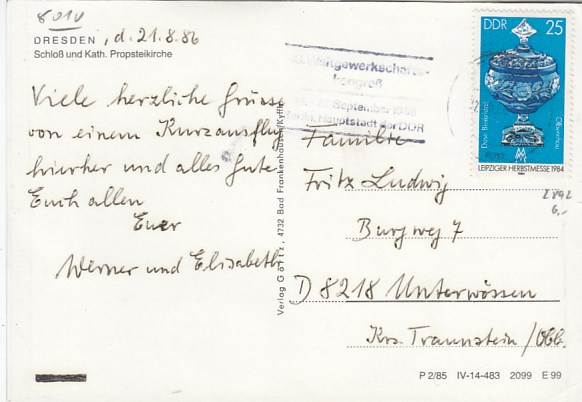 8010
DRESDEN, d. 21.8.86
Schloß und Kath. Propsteikirche
Viele herzliche Grüsse
von einem Kurzausflug
hierher und alles Gute
Euch allen
Euer
Werner und Elisabeth
Verlag Görtz, 4732 Bad Frankenhausen/Kyffh.
XI. Weltgewerkschafts-
kongreß
September 1986
Berlin, Hauptstadt der DDR
DDR 25
Dose, Bleikristall
Olbernhau
LEIPZIGER HERBSTMESSE 1984
2892
6,-
Familie
Fritz Ludwig
Burgweg 7
D 8218 Unterwössen
Krs. Traunstein/Obb.
P 2/85 IV-14-483 2099 E 99